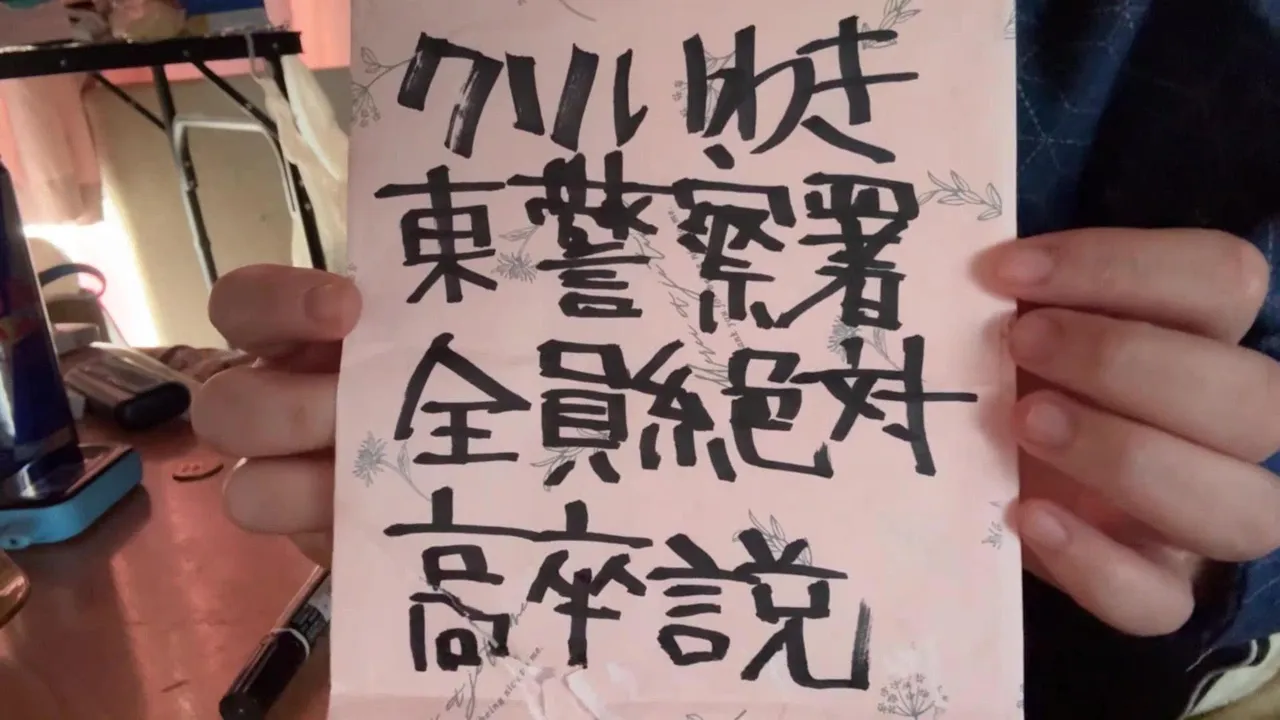 クリルいわき
東警察署
全員絶対
高卒説